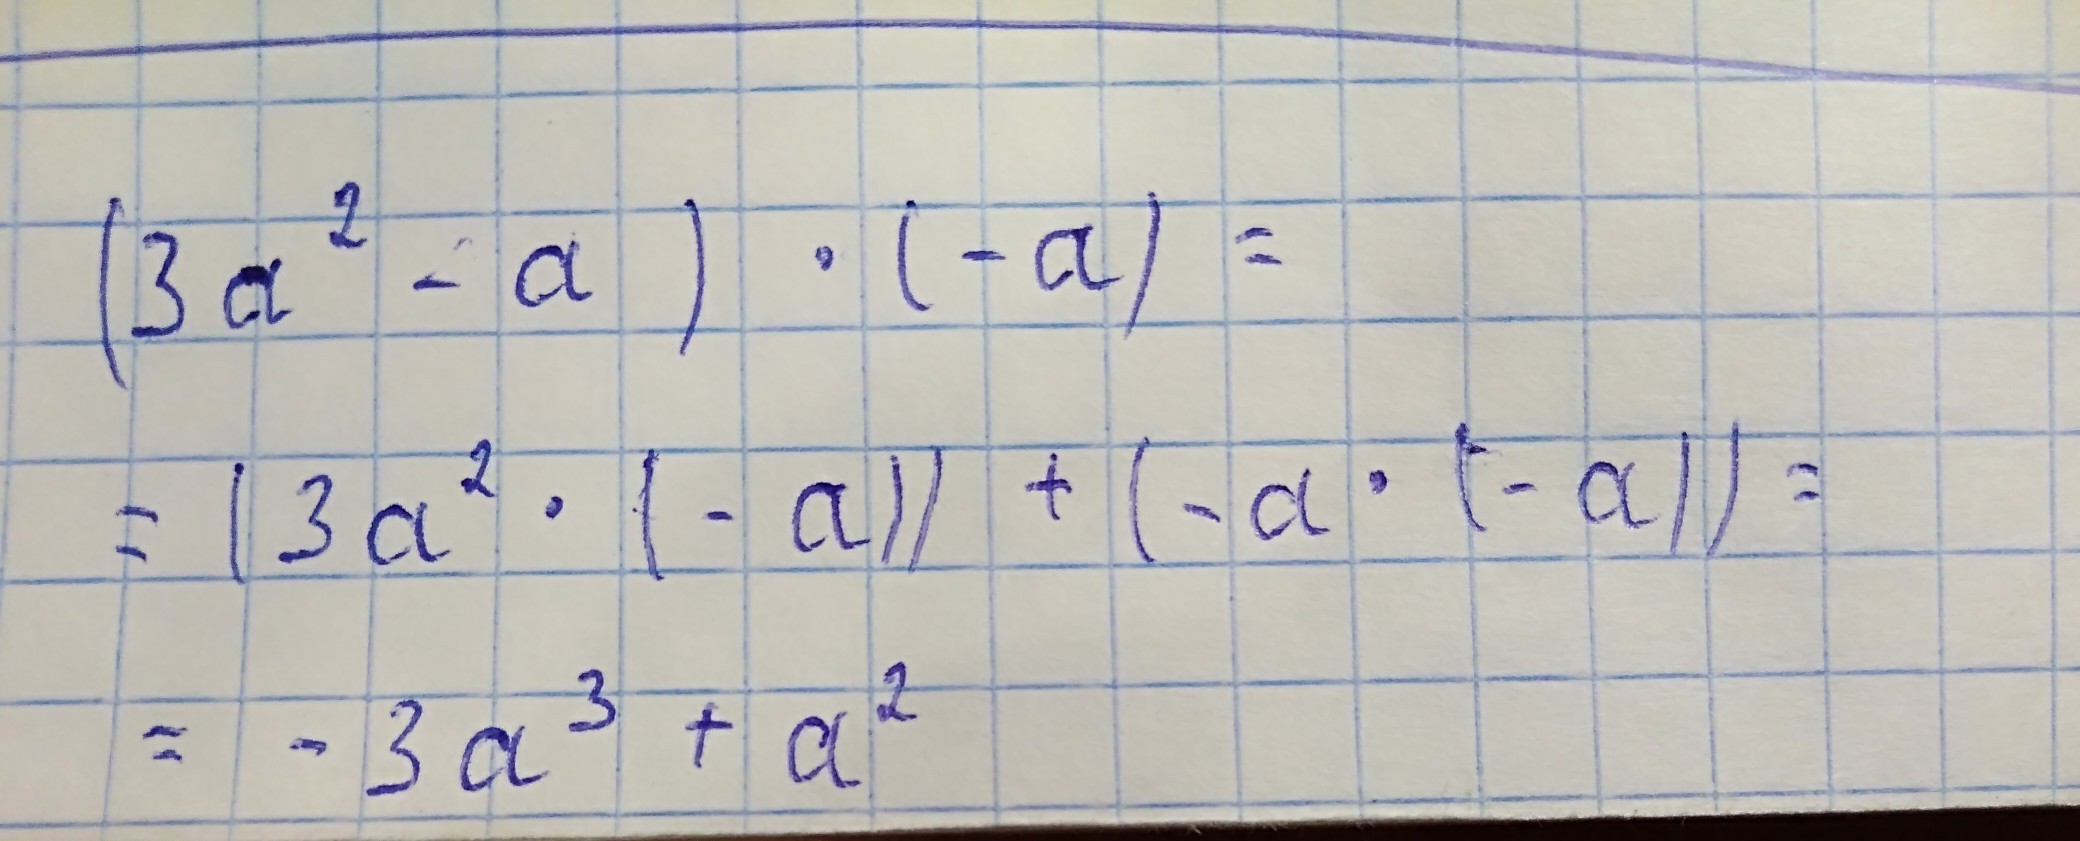 (3a² - a) · (-a) =
= (3a² · (-a)) + (-a · (-a)) =
= -3a³ + a²